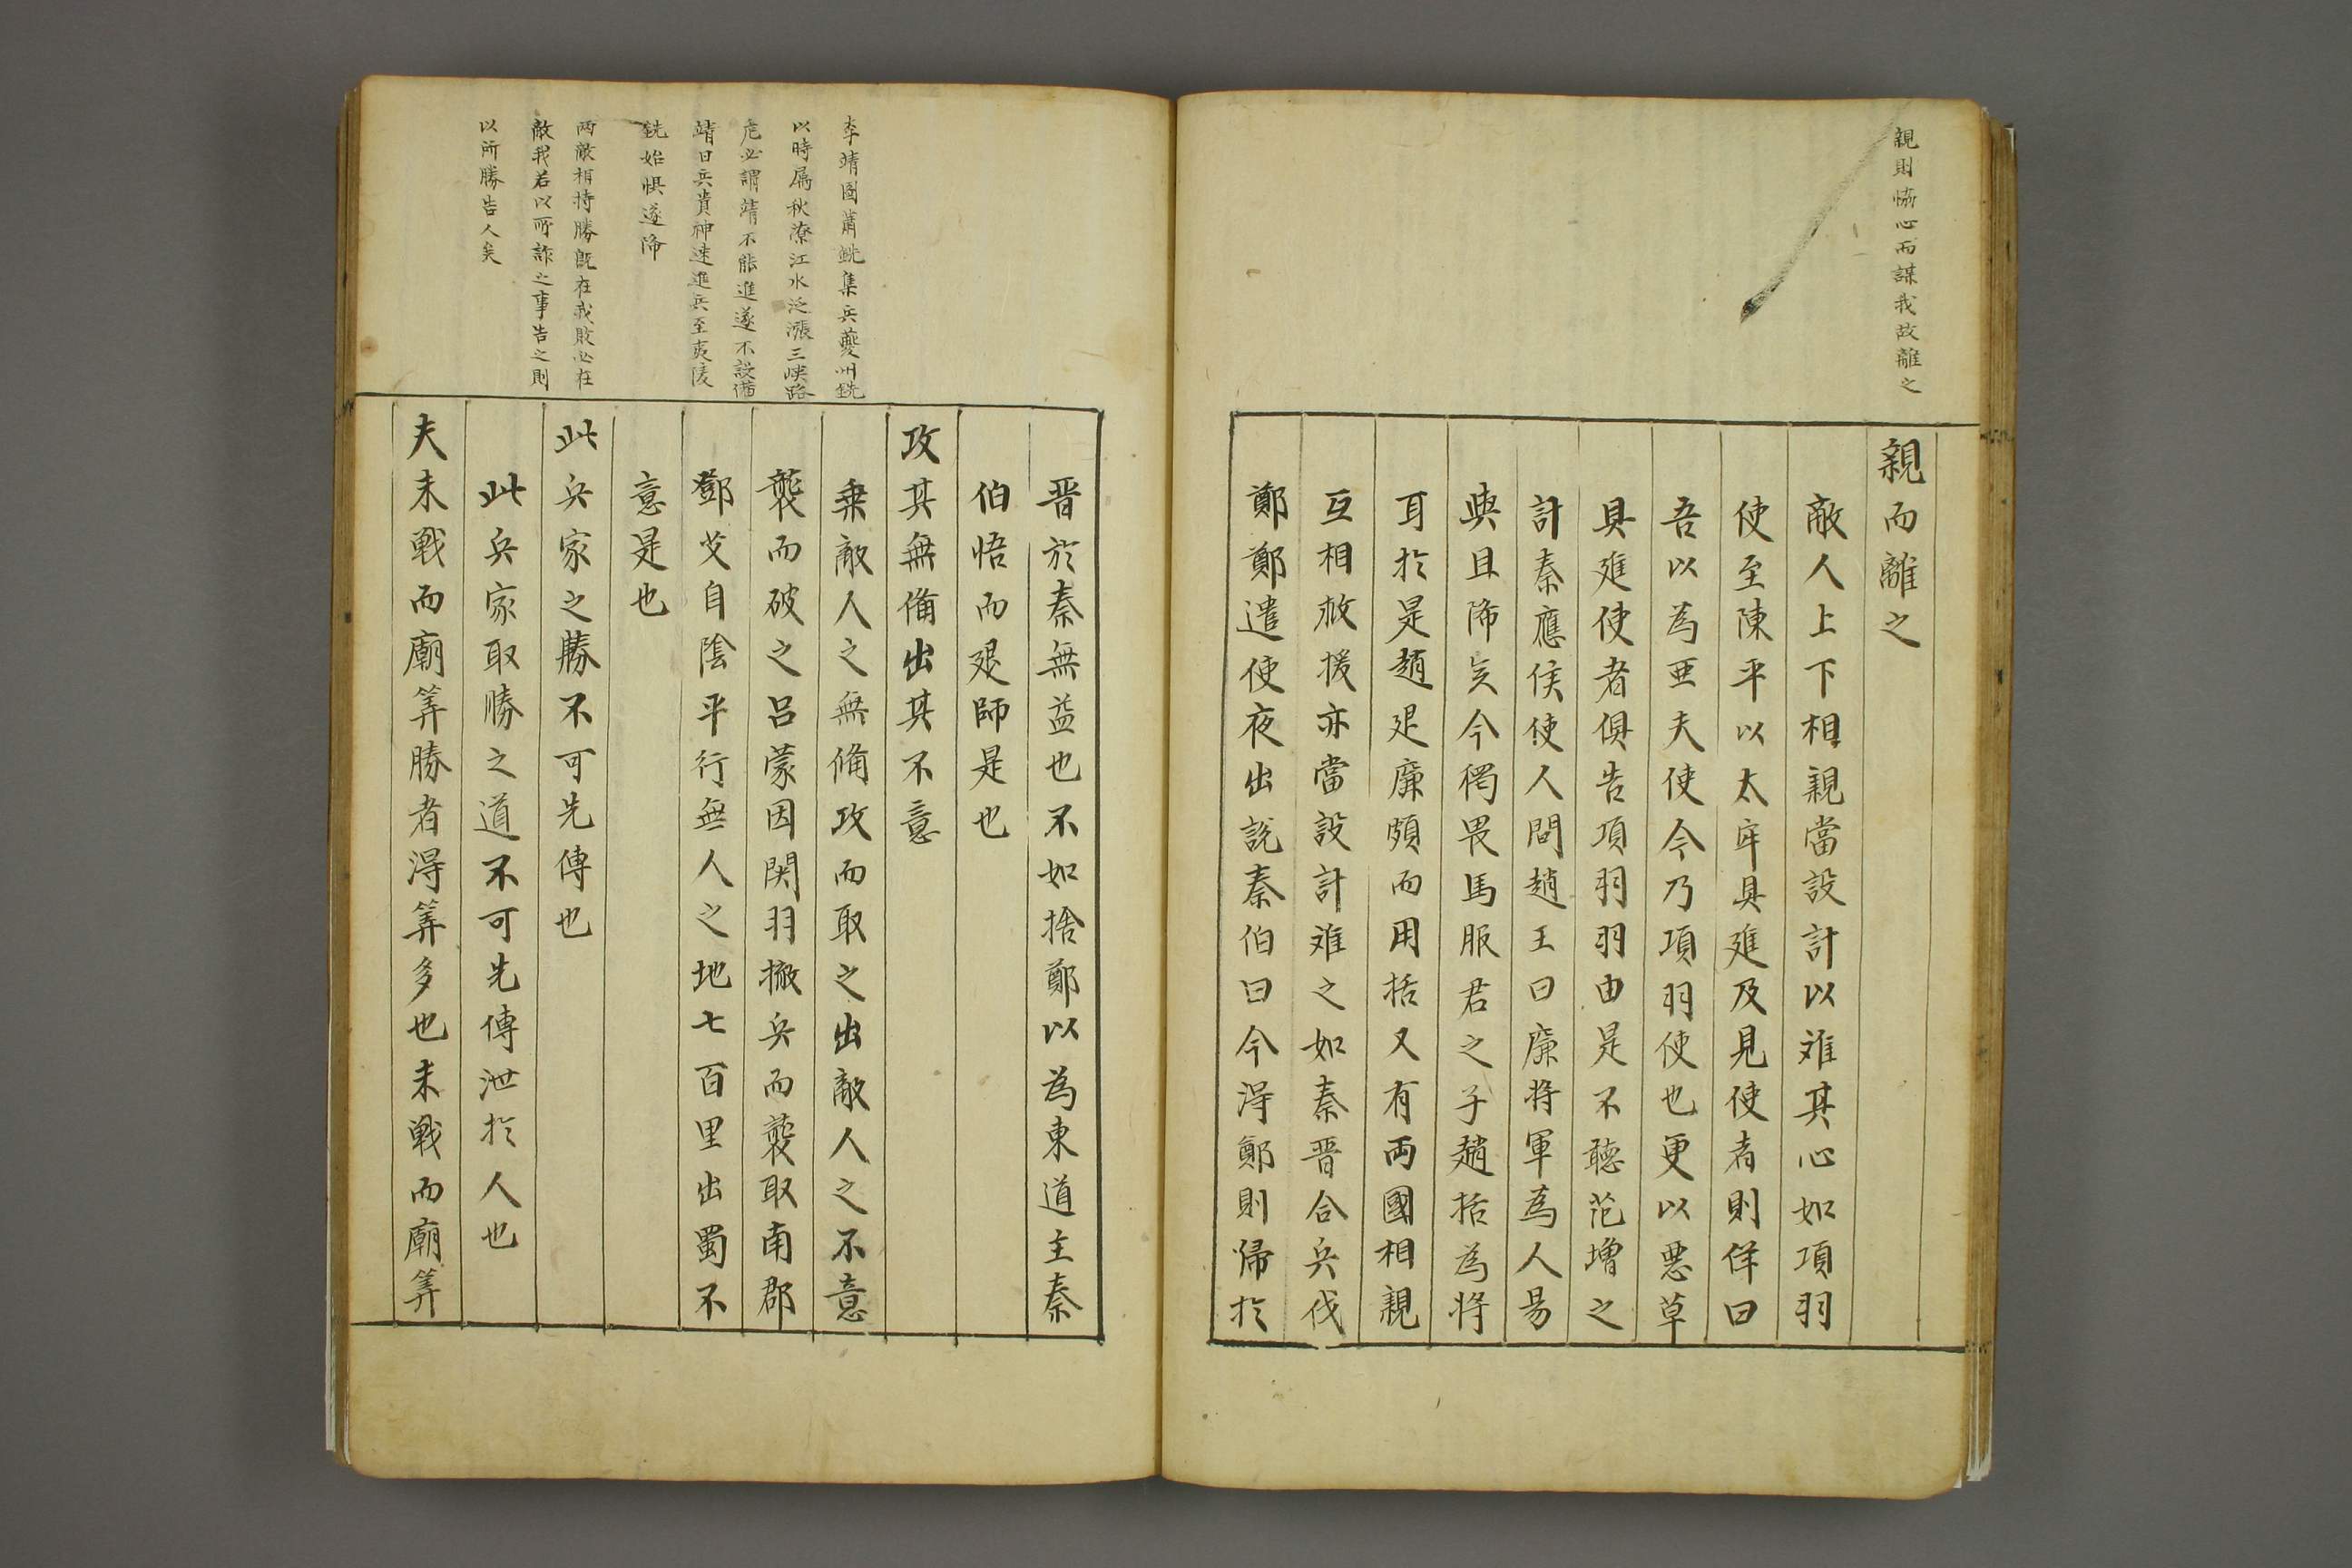 親則恊心而謀我故離之
親而離之
敵人上下相親當設計以难其心如項羽
使至陳平以太牢具進及見使者則佯曰
吾以為亜夫使今乃項羽使也更以悪草
具進使者俱告項羽羽由是不聴范增之
計秦應侯使人間趙王曰廉将軍為人易
與且降矣今獨畏馬服君之子趙括為将
耳於是趙退廉頗而用括又有両國相親
互相救援亦當設計难之如秦晋合兵伐
鄭鄭遣使夜出說秦伯曰今淂鄭則帰於
李靖圖蕭銑集兵夔州銑
以時属秋潦江水泛漲三峡路
危必謂靖不能進遂不設備
靖曰兵貴神速進兵至夷陵
銑始惧遂降
両敵相持勝既在我敗必在
敵我若以所詐之事告之則
以所勝告人矣
晋於秦無益也不如捨鄭以為東道主秦
伯悟而退師是也
攻其無俻出其不意
乗敵人之無俻攻而取之出敵人之不意
襲而破之呂蒙因関羽撤兵而襲取南郡
鄧艾自陰平行無人之地七百里出蜀不
意是也
此兵家之勝不可先傳也
此兵家取勝之道不可先傳泄於人也
夫未戦而廟筭勝者淂筭多也未戦而廟筭